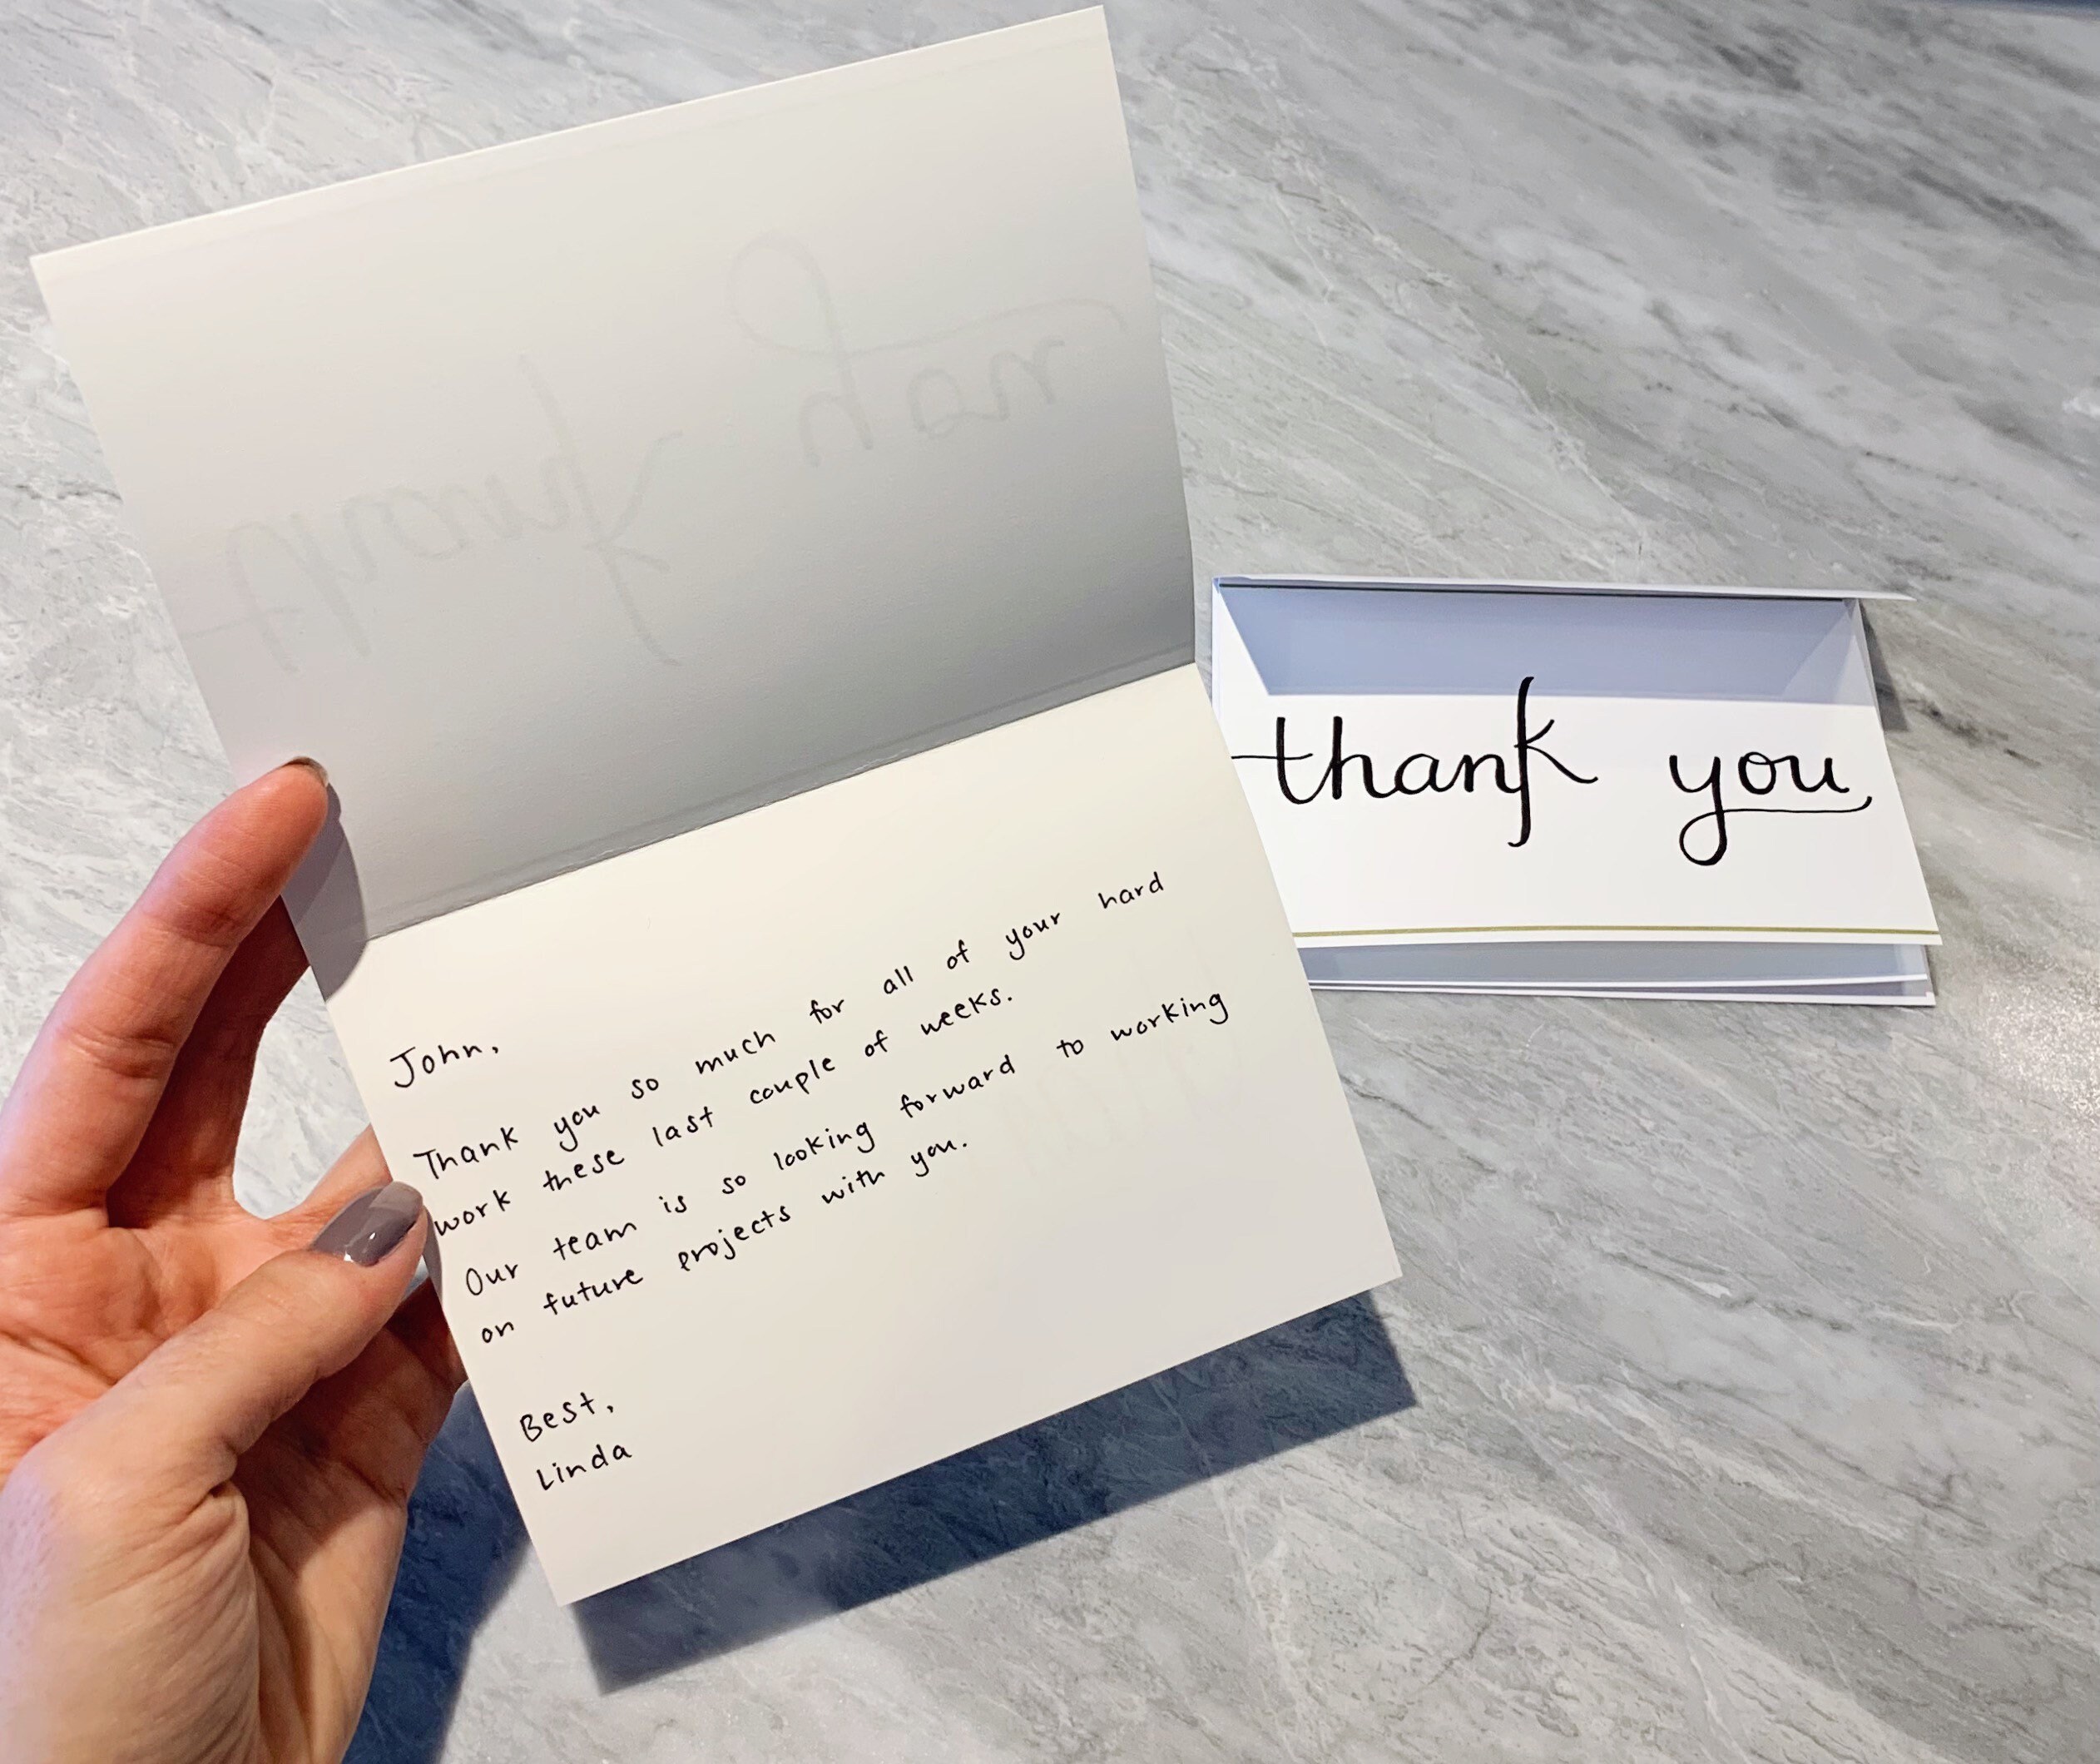 John,
Thank you so much for all of your hard
work these last couple of weeks.
Our team is so looking forward to working
on future projects with you.
Best,
Linda
thank you